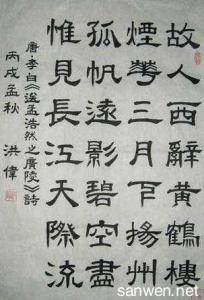 故人西辭黃鶴樓
煙花三月下揚州
孤帆遠影碧空盡
惟見長江天際流
唐·李白《送孟浩然之廣陵》詩
丙戌孟秋 洪偉
sanwen.net